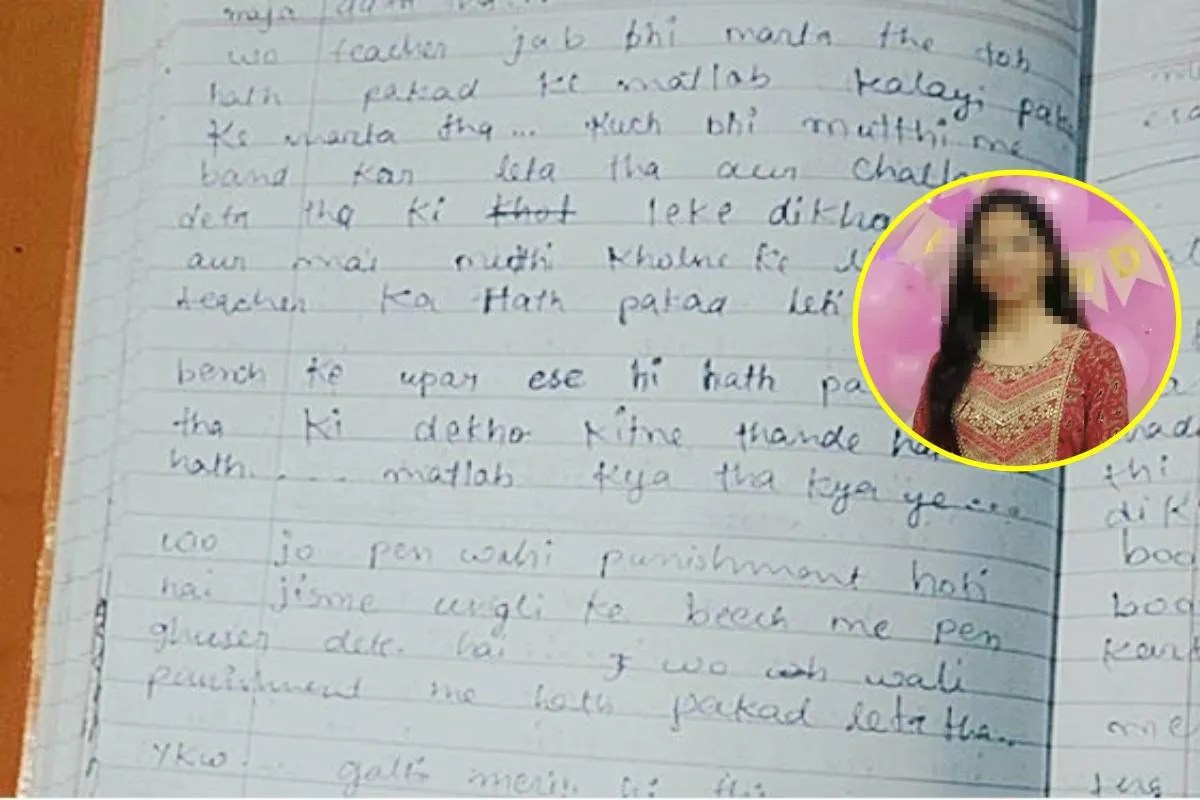 maja
wo teacher jab bhi marta the toh
hath pakad ke matlab kalayi pak
ke marta tha... Kuch bhi mutthi me
band kar leta tha aur Chall
deta tha ki thot leke dikha
aur mai muthi kholne ke
teacher ka Hath pakad leti
bench ke upar ese hi hath pa
tha ki dekho kitne thande ha
hath.... matlab kya tha kya ye....
woo jo pen wali punishment hoti
hai jisme ungli ke beech me pen
ghuser dete hai.... wo wali
punishment me hath pakad leta tha...
YKW... galti meri hi thi
thi
dik
bog
bog
kar
me